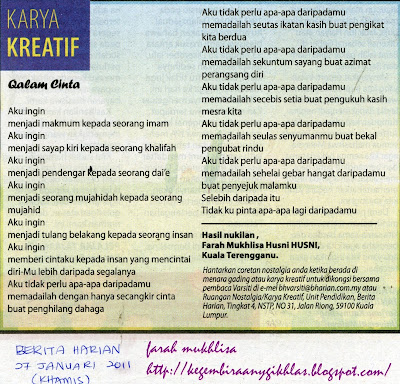 KARYA
KREATIF
Qalam Cinta
Aku ingin
menjadi makmum kepada seorang imam
Aku ingin
menjadi sayap kiri kepada seorang khalifah
Aku ingin
menjadi pendengar kepada seorang dai'e
Aku ingin
menjadi seorang mujahidah kepada seorang
mujahid
Aku ingin
menjadi tulang belakang kepada seorang insan
Aku ingin
memberi cintaku kepada insan yang mencintai
diri-Mu lebih daripada segalanya
Aku tidak perlu apa-apa daripadamu
memadailah dengan hanya secangkir cinta
buat penghilang dahaga
Aku tidak perlu apa-apa daripadamu
memadailah seutas ikatan kasih buat pengikat
kita berdua
Aku tidak perlu apa-apa daripadamu
memadailah sekuntum sayang buat azimat
perangsang diri
Aku tidak perlu apa-apa daripadamu
memadailah secebis setia buat pengukuh kasih
mesra kita
Aku tidak perlu apa-apa daripadamu
memadailah seulas senyumanmu buat bekal
pengubat rindu
Aku tidak perlu apa-apa daripadamu
memadailah sehelai gebar hangat daripadamu
buat penyejuk malamku
Selebih daripada itu
Tidak ku pinta apa-apa lagi daripadamu
Hasil nukilan ,
Farah Mukhlisa Husni HUSNI,
Kuala Terengganu.
Hantarkan caretan nostalgia anda ketika berada di
menara gading atau karya kreatif untuk dikongsi bersama
pembaca Varsiti di e-mel bhvarsiti@bharian.com.my atau
Ruangan Nostalgia/Karya Kreatif, Unit Pendidikan, Berita
Harian, Tingkat 4, NSTP, NO 31, Jalan Riong, 59100 Kuala
Lumpur.
BERITA HARIAN
27 JANUARI 2011
(KHAMIS)
farah mukhlisa
http://kegembiraanygikhlas.blogspot.com/